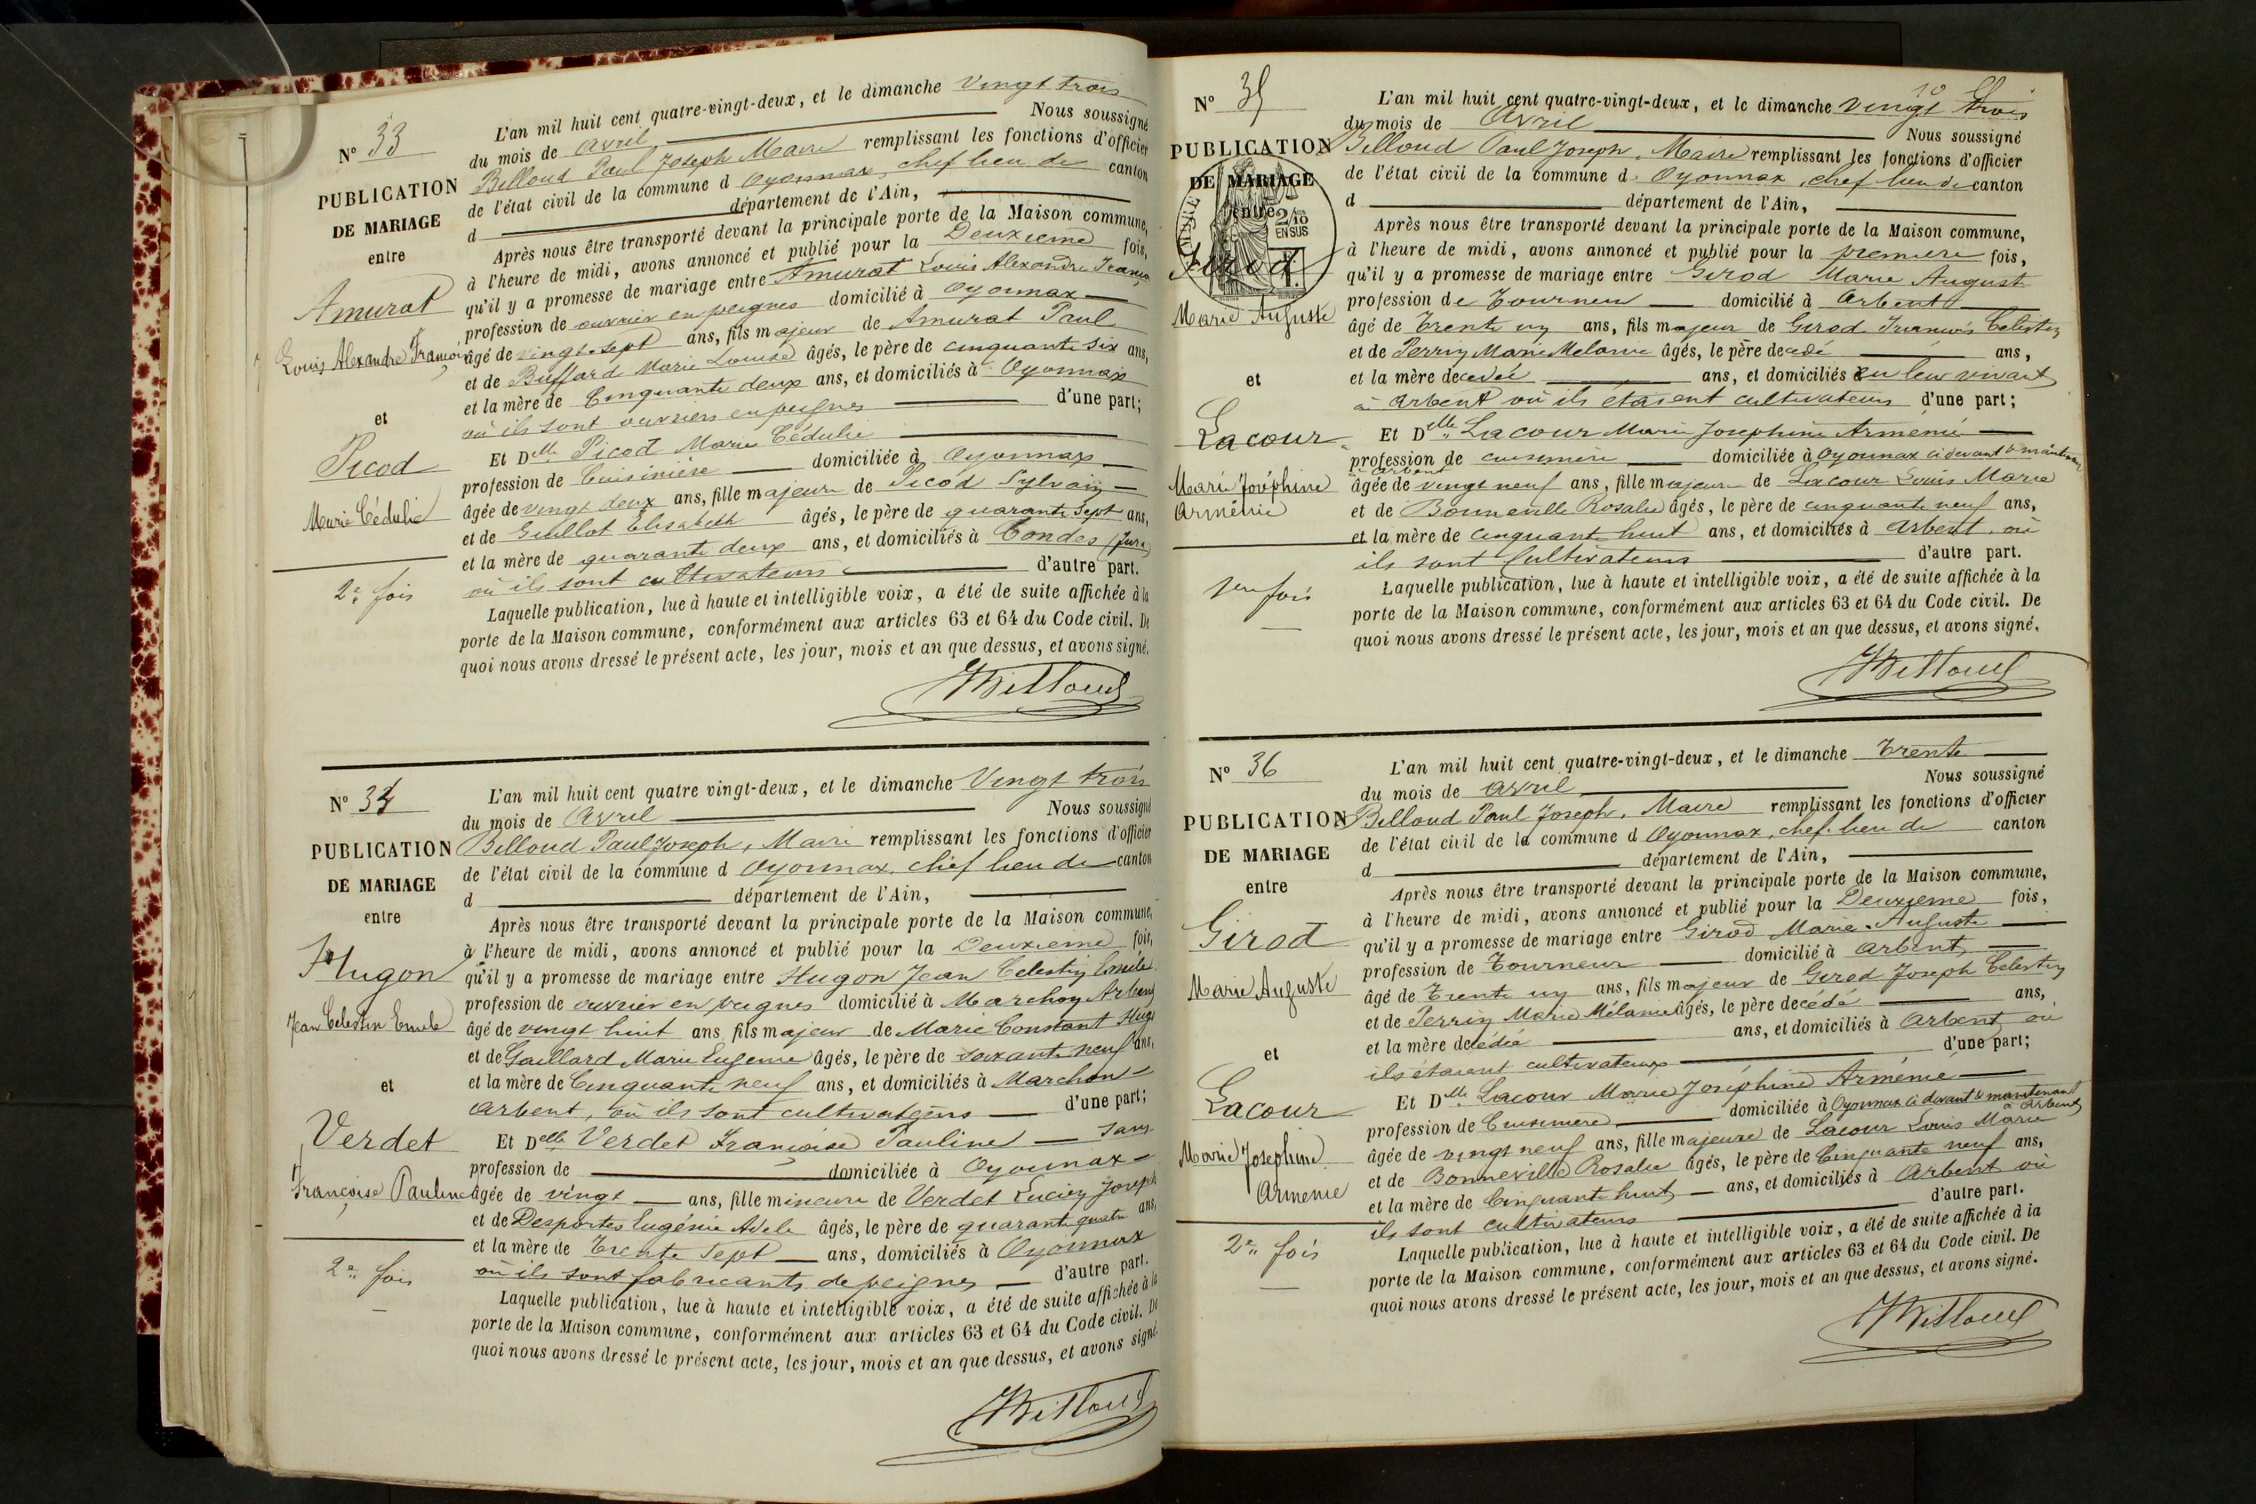 N° 33
PUBLICATION
DE MARIAGE
entre
Amurat
Louis Alexandre François
et
Picod
Marie Cédulie
2e fois
L'an mil huit cent quatre-vingt-deux, et le dimanche vingt trois
du mois de avril Nous soussigné
Billoud Paul Joseph Maire remplissant les fonctions d'officier
de l'état civil de la commune d Oyonnax, chef lieu de canton
d département de l'Ain,
Après nous être transporté devant la principale porte de la Maison commune,
à l'heure de midi, avons annoncé et publié pour la Deuxieme fois,
qu'il y a promesse de mariage entre Amurat Louis Alexandre François
profession de ouvrier en peignes domicilié à Oyonnax
âgé de vingt-sept ans, fils majeur de Amurat Paul
et de Buffard Marie Louise âgés, le père de cinquante six ans,
et la mère de Cinquante deux ans, et domiciliés à Oyonnax
où ils sont ouvriers en peignes d'une part;
Et Dlle Picod Marie Cédulie
profession de Cuisinière domiciliée à Oyonnax
âgée de vingt deux ans, fille majeure de Picod Sylvain
et de Guillot Elisabeth âgés, le père de quarante sept ans,
et la mère de quarante deux ans, et domiciliés à Condes (Jura)
où ils sont cultivateurs d'autre part.
Laquelle publication, lue à haute et intelligible voix, a été de suite affichée à la
porte de la Maison commune, conformément aux articles 63 et 64 du Code civil. De
quoi nous avons dressé le présent acte, les jour, mois et an que dessus, et avons signé.
Billoud
N° 34
PUBLICATION
DE MARIAGE
entre
Hugon
Jean Celestin Emile
et
Verdet
Françoise Pauline
2e fois
L'an mil huit cent quatre vingt-deux, et le dimanche Vingt trois
du mois de Avril Nous soussigné
Billoud Paul Joseph, Maire remplissant les fonctions d'officier
de l'état civil de la commune d Oyonnax, chef lieu de canton
d département de l'Ain,
Après nous être transporté devant la principale porte de la Maison commune,
à l'heure de midi, avons annoncé et publié pour la Deuxieme fois,
qu'il y a promesse de mariage entre Hugon Jean Celestin Emile
profession de ouvrier en peignes domicilié à Marchon Arbent
âgé de vingt huit ans fils majeur de Marie Constant Hugon
et de Gaillard Marie Eugenie âgés, le père de soixante neuf ans,
et la mère de Cinquante neuf ans, et domiciliés à Marchon
Arbent, où ils sont cultivateurs d'une part;
Et Delle Verdet Françoise Pauline sans
profession de domiciliée à Oyonnax
âgée de vingt ans, fille mineure de Verdet Lucien Joseph
et de Desportes Eugénie Adele âgés, le père de quarante quatre ans,
et la mère de Trente sept ans, domiciliés à Oyonnax
où ils sont fabricants de peignes d'autre part.
Laquelle publication, lue à haute et intelligible voix, a été de suite affichée à la
porte de la Maison commune, conformément aux articles 63 et 64 du Code civil. De
quoi nous avons dressé le présent acte, les jour, mois et an que dessus, et avons signé.
Billoud
10
N° 35
PUBLICATION
DE MARIAGE
entre
TIMBRE
2/10
EN SUS
Girod
Marie Auguste
et
Lacour
Marie Joséphine
Arménie
1ere fois
L'an mil huit cent quatre-vingt-deux, et le dimanche vingt trois
du mois de Avril Nous soussigné
Billoud Paul Joseph, Maire remplissant les fonctions d'officier
de l'état civil de la commune d Oyonnax, chef lieu de canton
d département de l'Ain,
Après nous être transporté devant la principale porte de la Maison commune,
à l'heure de midi, avons annoncé et publié pour la premiere fois,
qu'il y a promesse de mariage entre Girod Marie August
profession de Tourneur domicilié à Arbent
âgé de Trente un ans, fils majeur de Girod François Celestin
et de Perrin Marie Melanie âgés, le père decedé ans,
et la mère decedée ans, et domiciliés en leur vivant
à Arbent où ils étaient cultivateurs d'une part;
Et Delle Lacour Marie Josephine Arménie
profession de cuisinière domiciliée à Oyonnax ci devant & maintenant
à Arbent
âgée de vingt neuf ans, fille majeure de Lacour Louis Marie
et de Bonneville Rosalie âgés, le père de cinquante neuf ans,
et la mère de cinquante huit ans, et domiciliés à Arbent, où
ils sont Cultivateurs d'autre part.
Laquelle publication, lue à haute et intelligible voix, a été de suite affichée à la
porte de la Maison commune, conformément aux articles 63 et 64 du Code civil. De
quoi nous avons dressé le présent acte, les jour, mois et an que dessus, et avons signé.
Billoud
N° 36
PUBLICATION
DE MARIAGE
entre
Girod
Marie Auguste
et
Lacour
Marie Josephine
Armenie
2e fois
L'an mil huit cent quatre-vingt-deux, et le dimanche Trente
du mois de avril Nous soussigné
Billoud Paul Joseph, Maire remplissant les fonctions d'officier
de l'état civil de la commune d Oyonnax, chef-lieu de canton
d département de l'Ain,
Après nous être transporté devant la principale porte de la Maison commune,
à l'heure de midi, avons annoncé et publié pour la Deuxieme fois,
qu'il y a promesse de mariage entre Girod Marie Auguste
profession de Tourneur domicilié à Arbent,
âgé de Trente un ans, fils majeur de Girod Joseph Celestin
et de Perrin Marie Mélanie âgés, le père decédé ans,
et la mère decédée ans, et domiciliés à Arbent, où
ils étaient cultivateurs d'une part;
Et Dlle Lacour Marie Joséphine Arménie
profession de Cuisinière domiciliée à Oyonnax ci devant & maintenant
à Arbent
âgée de vingt neuf ans, fille majeure de Lacour Louis Marie
et de Bonneville Rosalie âgés, le père de Cinquante neuf ans,
et la mère de Cinquante huit ans, et domiciliés à Arbent où
ils sont cultivateurs d'autre part.
Laquelle publication, lue à haute et intelligible voix, a été de suite affichée à la
porte de la Maison commune, conformément aux articles 63 et 64 du Code civil. De
quoi nous avons dressé le présent acte, les jour, mois et an que dessus, et avons signé.
Billoud